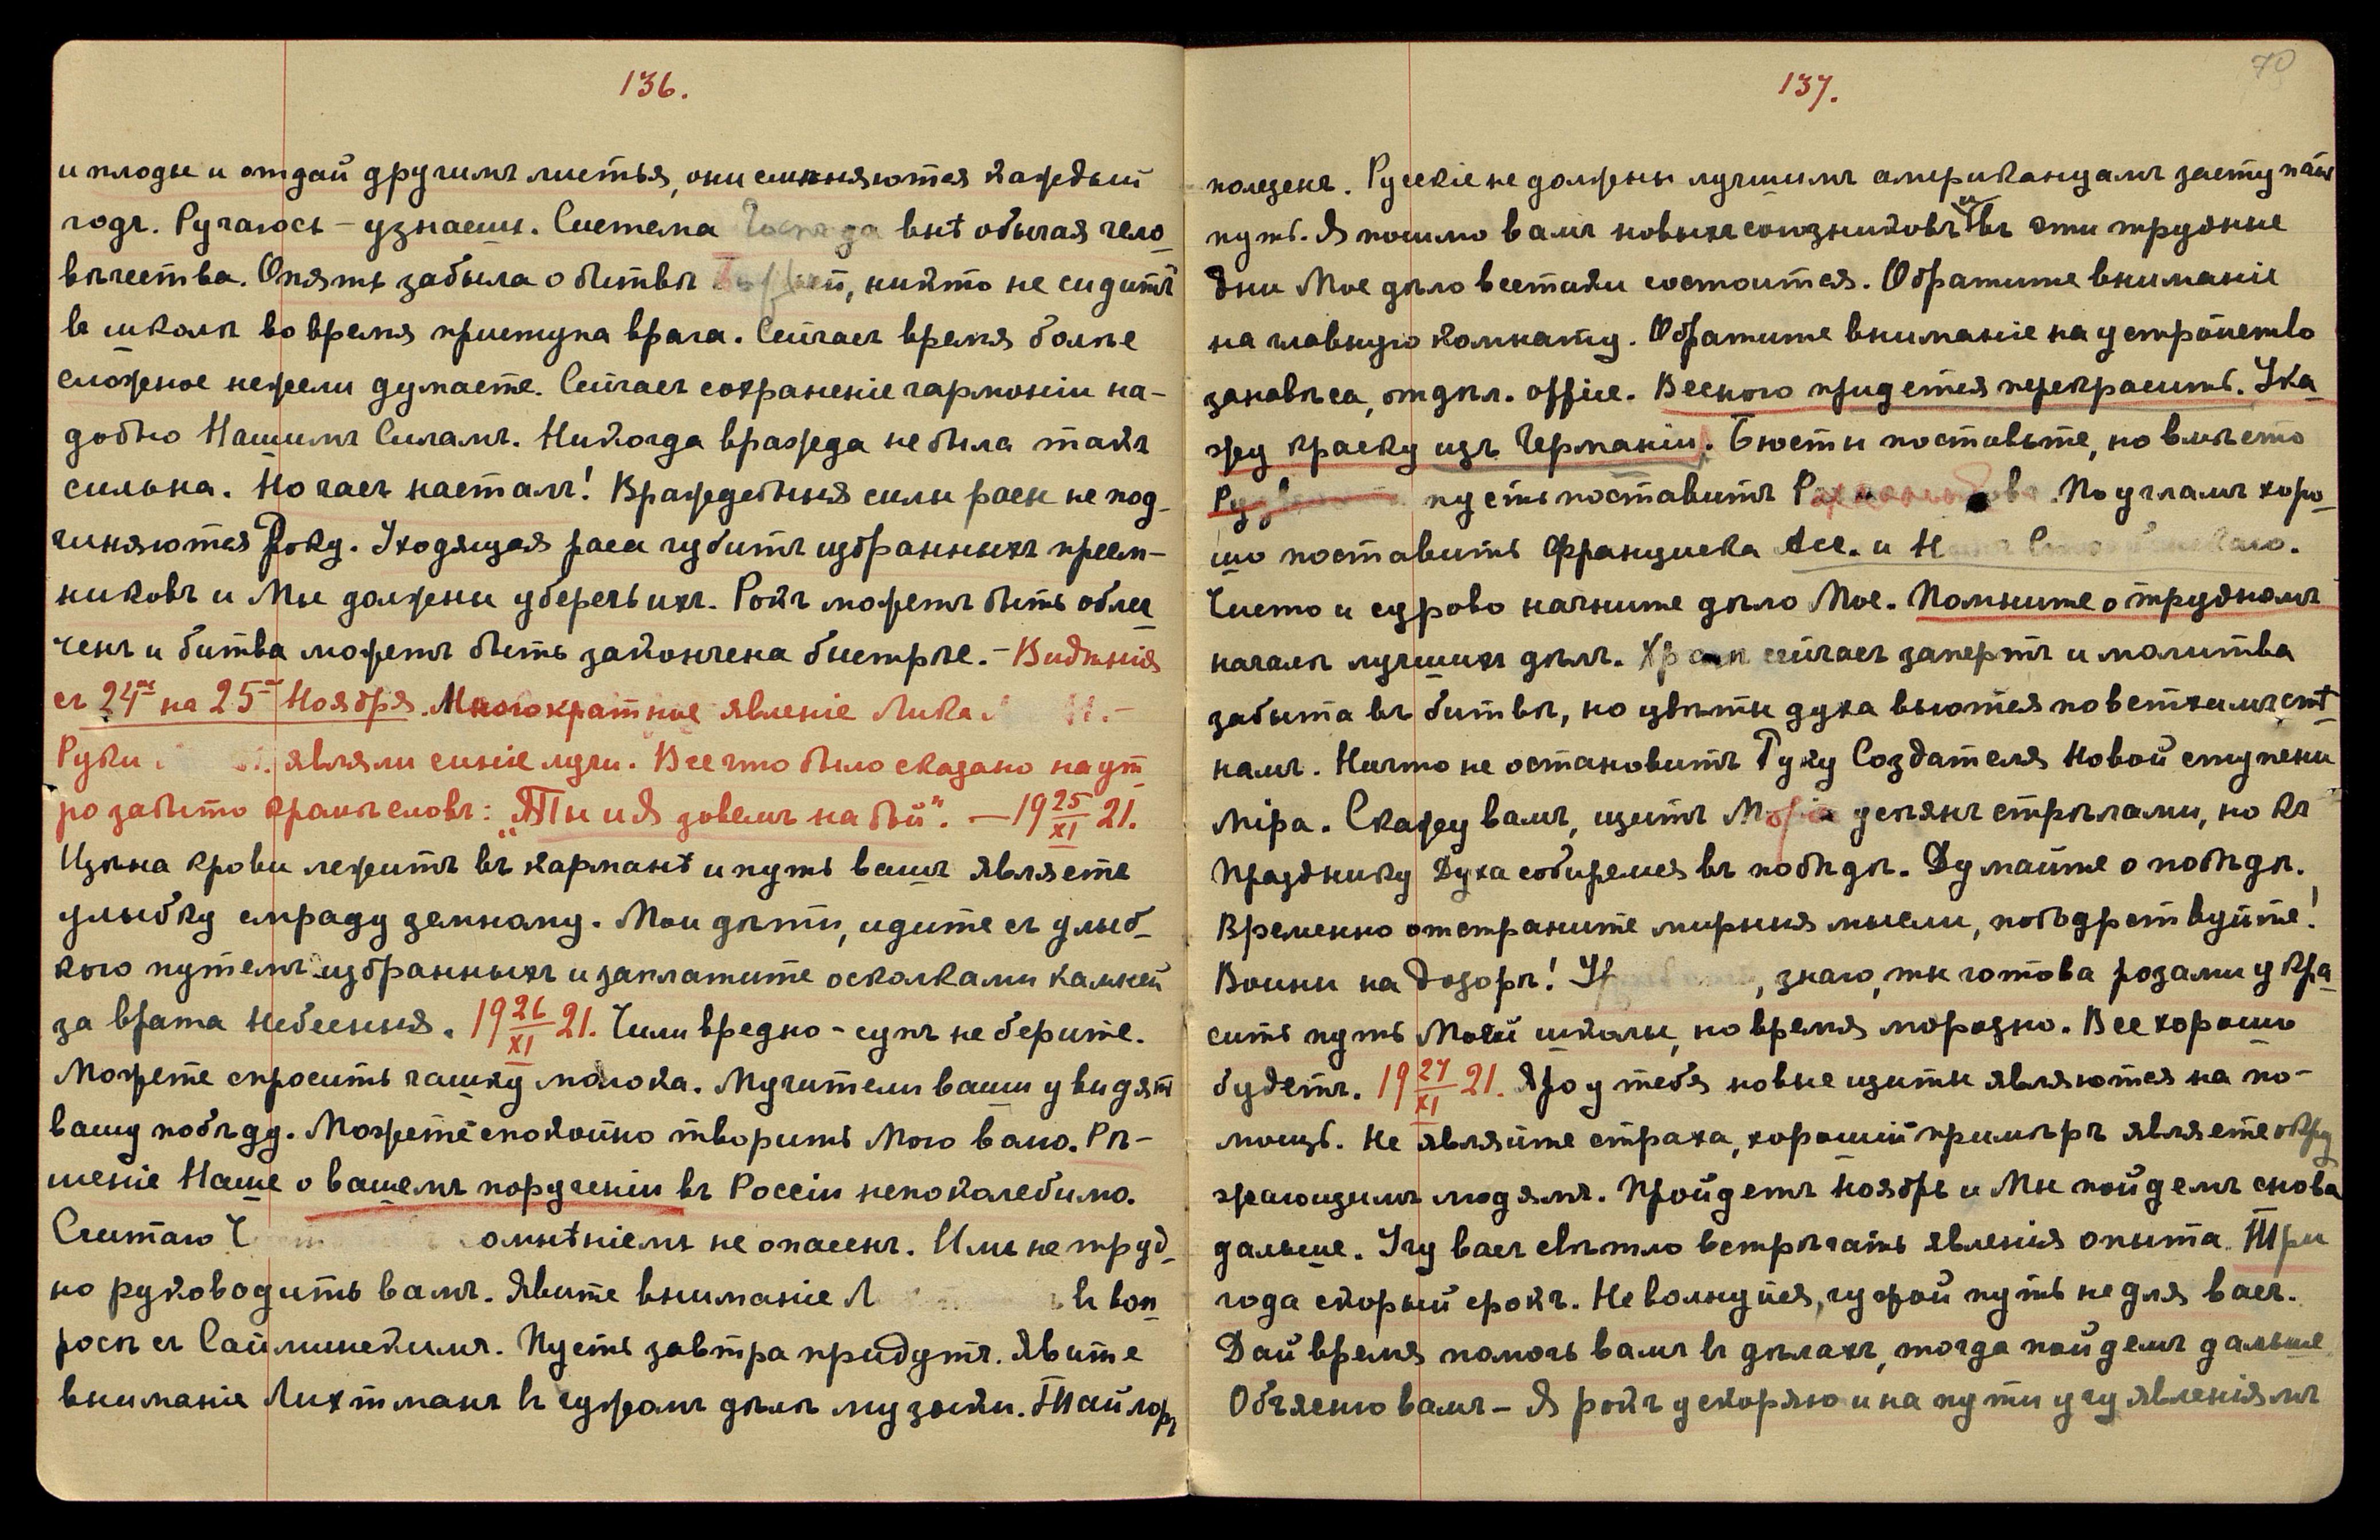 136.
и плоды и отдай другимъ листья, они смѣняются каждый
годъ. Ручаюсь – узнаешь. Система внѣ обычая чело-
вѣчества. Опять забыла о битвѣ никто не сидитъ
въ школѣ во время приступа врага. Сейчасъ время болѣе
сложное нежели думаете. Сейчасъ сохраненіе гармоніи на-
добно Нашимъ Силамъ. Никогда вражда не была такъ
сильна. Но часъ насталъ! Враждебныя силы расы не под-
чиняются Року. Уходящая раса губитъ избранныхъ преем-
никовъ и Мы должны уберечь ихъ. Рокъ можетъ быть облег-
ченъ и битва можетъ быть закончена быстрѣе. – Видѣнія
съ 24го на 25ое Ноября. Многократное явленіе Лика –
Руки являли синіе лучи. Все что было сказано на ут
ро забыто кромѣ словъ: „Ты и Я зовемъ на бой". – 19 25/XI 21.
Цѣна крови лежитъ въ карманѣ и путь вашъ являете
улыбку смраду земному. Мои дѣти, идите съ улыб-
кою путемъ избранныхъ и заплатите осколками камней
за врата Небесныя. 19 26/XI 21. Чили вредно – супъ не берите.
Можете спросить чашку молока. Мучители ваши увидятъ
вашу побѣду. Можете спокойно творить Мою волю. Рѣ-
шеніе Наше о вашемъ порученіи въ Россіи непоколебимо.
Считаю омнѣніемъ не опасенъ. Имъ не труд-
но руководить вамъ. Явите вниманіе въ воп-
росѣ съ Сайминскимъ. Пусть завтра придутъ. Явите
вниманіе Лихтманъ въ чужомъ дѣлѣ музыки. Тайлоръ
70
137.
полезенъ. Русскіе не должны лучшимъ американцамъ заступать
путь. Я пошлю вамъ новыхъ союзниковъ и въ эти трудные
дни Мое дѣло всетаки состоится. Обратите вниманіе
на главную комнату. Обратите вниманіе на устройство
занавѣса, отдѣл. office. Весною придется перекрасить. Ука-
жу краску изъ Германіи. Бюсты поставьте, но вмѣсто
пусть поставитъ По угламъ хоро-
шо поставить Франциска Асс. и
Чисто и сурово начните дѣло Мое. Помните о трудномъ
началѣ лучшихъ дѣлъ. Храмъ сейчасъ запертъ и молитва
забыта въ битвѣ, но цвѣты духа вьются по ветхимъ стѣ-
намъ. Ничто не остановитъ Руку Создателя Новой ступени
міра. Скажу вамъ, щитъ усѣянъ стрѣлами, но къ
Празднику Духа соберемся въ побѣдѣ. Думайте о побѣдѣ.
Временно отстраните мирныя мысли, побѣдрствуйте!
Воины на дозорѣ! знаю, ты готова розами укра-
сить путь Моей школы, но время морозно. Все хорошо
будетъ. 19 27/XI 21. Яро у тебя новые щиты являются на по-
мощь. Не являйте страха, хорошій примѣръ являете окру
жающимъ людямъ. Пройдетъ Ноябрь и Мы пойдемъ снова
дальше. Учу васъ свѣтло встрѣчать явленія опыта. Три
года скорый срокъ. Не волнуйся, чужой путь не для васъ.
Дай время помочь вамъ въ дѣлахъ, тогда пойдемъ дальше
Объясню вамъ – Я рокъ ускоряю и на пути учу явленіямъ